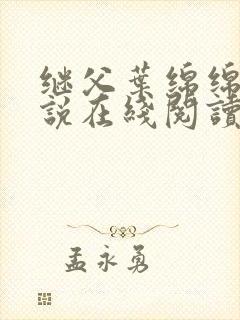 继父葉绵绵
說在綫閱讀
孟永勇